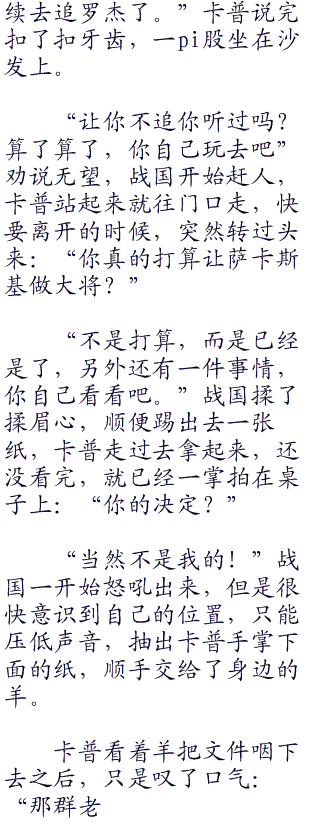 续去追罗杰了。”卡普说完
扣了扣牙齿，一pi股坐在沙
发上。
“让你不追你听过吗？
算了算了，你自己玩去吧”
劝说无望，战国开始赶人，
卡普站起来就往门口走，快
要离开的时候，突然转过头
来：“你真的打算让萨卡斯
基做大将？”
“不是打算，而是已经
是了，另外还有一件事情，
你自己看看吧。”战国揉了
揉眉心，顺便踢出去一张
纸，卡普走过去拿起来，还
没看完，就已经一掌拍在桌
子上：“你的决定？”
“当然不是我的！”战
国一开始怒吼出来，但是很
快意识到自己的位置，只能
压低声音，抽出卡普手掌下
面的纸，顺手交给了身边的
羊。
卡普看着羊把文件咽下
去之后，只是叹了口气：
“那群老